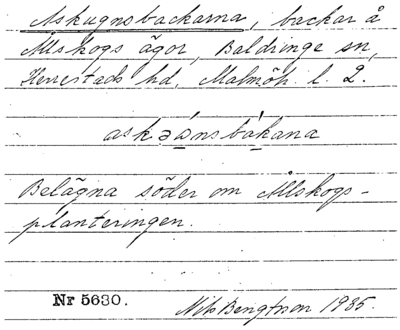 Askugnsbackarna, backar å
Ållskogs ägor, Baldringe sn,
Herrestads hd, Malmöh. l. 2.
Belägna söder om Ållskogs-
planteringen.
Nr 5630. Nils Bengtson 1935.